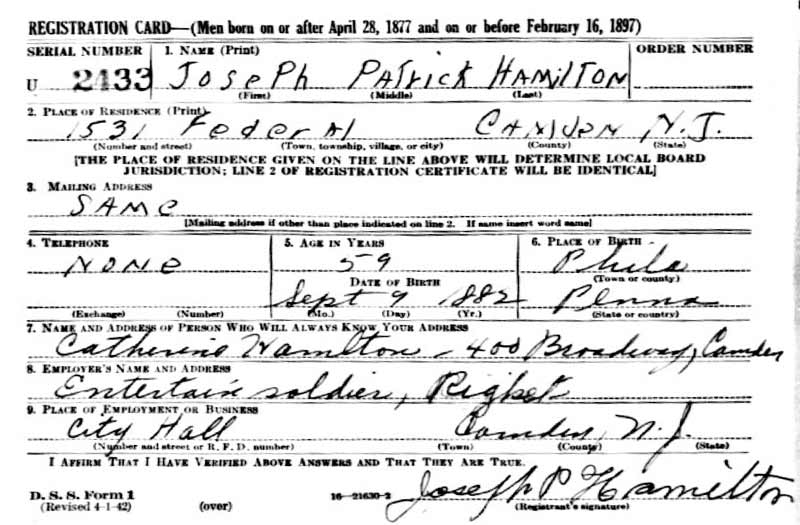 REGISTRATION CARD—(Men born on or after April 28, 1877 and on or before February 16, 1897)
SERIAL NUMBER 1. NAME (Print) ORDER NUMBER
U 2433 JosePh PATRICK HAMILTON
(First) (Middle) (Last)
2. PLACE OF RESIDENCE (Print)
1531 Federal CAMDEN N.J.
(Number and street) (Town, township, village, or city) (County) (State)
[THE PLACE OF RESIDENCE GIVEN ON THE LINE ABOVE WILL DETERMINE LOCAL BOARD
JURISDICTION; LINE 2 OF REGISTRATION CERTIFICATE WILL BE IDENTICAL]
3. MAILING ADDRESS
SAME
[Mailing address if other than place indicated on line 2. If same insert word same]
4. TELEPHONE 5. AGE IN YEARS 6. PLACE OF BIRTH
NONE 59 Phila
(Town or county)
DATE OF BIRTH
Sept 9 1882 Penna
(Exchange) (Number) (Mo.) (Day) (Yr.) (State or country)
7. NAME AND ADDRESS OF PERSON WHO WILL ALWAYS KNOW YOUR ADDRESS
Catherine Hamilton - 400 Broadway, Camden
8. EMPLOYER'S NAME AND ADDRESS
Entertain soldier,
9. PLACE OF EMPLOYMENT OR BUSINESS
City Hall Camden, N.J.
(Number and street or R. F. D. number) (Town) (County) (State)
I AFFIRM THAT I HAVE VERIFIED ABOVE ANSWERS AND THAT THEY ARE TRUE.
Joseph P Hamilton
D. S. S. Form 1 16—21630-2 (Registrant's signature)
(Revised 4-1-42) (over)